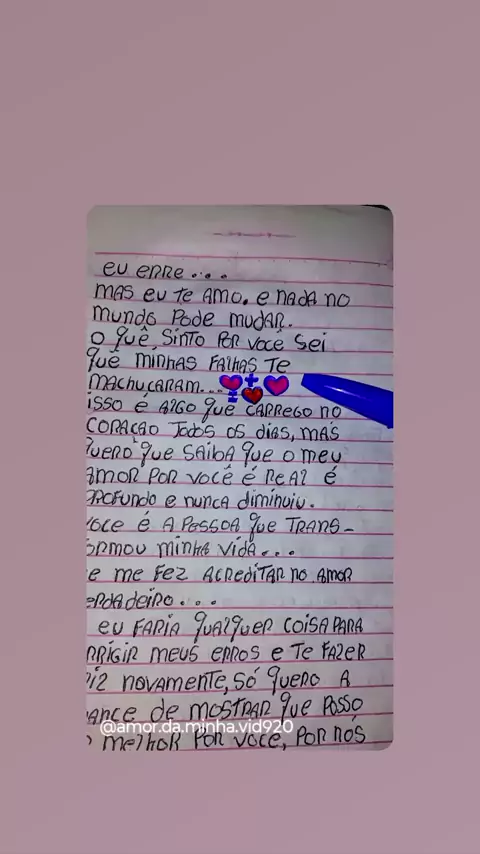 eu erre...
mas eu te amo. e nada no
mundo pode mudar.
o quê sinto por você sei
quê minhas falhas te
machucaram...
isso é algo que carrego no
coração todos os dias, mas
quero que saiba que o meu
amor por você é real é
profundo e nunca diminuiu.
voce é a pessoa que trans-
ormou minha vida...
e me fez acreditar no amor
erdadeiro...
eu faria qualquer coisa para
rrigir meus erros e te fazer
iz novamente, só quero a
ance de mostrar que posso
@amor.da.minha.vid920
melhor por voce, por nós